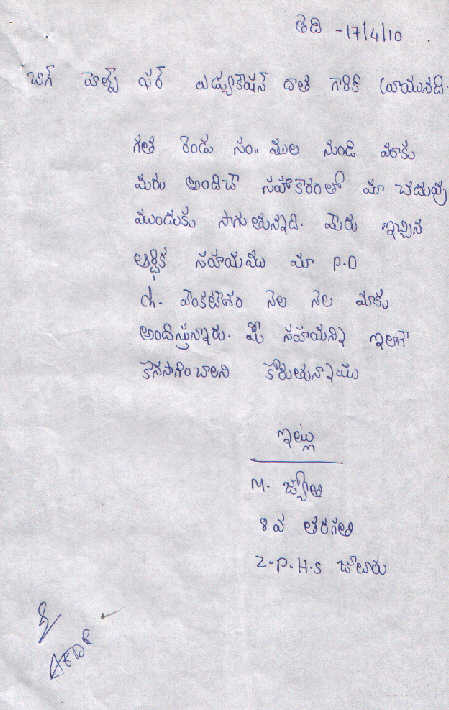 తేది -17/4/10
బిగ్ హెల్ప్ ఫర్ ఎడ్యుకేషన్ దాత గారికి వ్రాయునది.
గత రెండు సం.. ముల నుండి మాకు
మీరు అందించే సహకారంతో మా చదువు
ముందుకు సాగుతున్నది. మీరు ఇచ్చిన
ఆర్థిక సహాయము మా P.D
ch. వెంకటేశం నెల నెల మాకు
అందిస్తున్నారు. మీ సహాయాన్ని ఇలాగే
కొనసాగించాలని కోరుతున్నాము
ఇట్లు
M. జ్యోతి
8వ తరగతి
Z.P.H.S